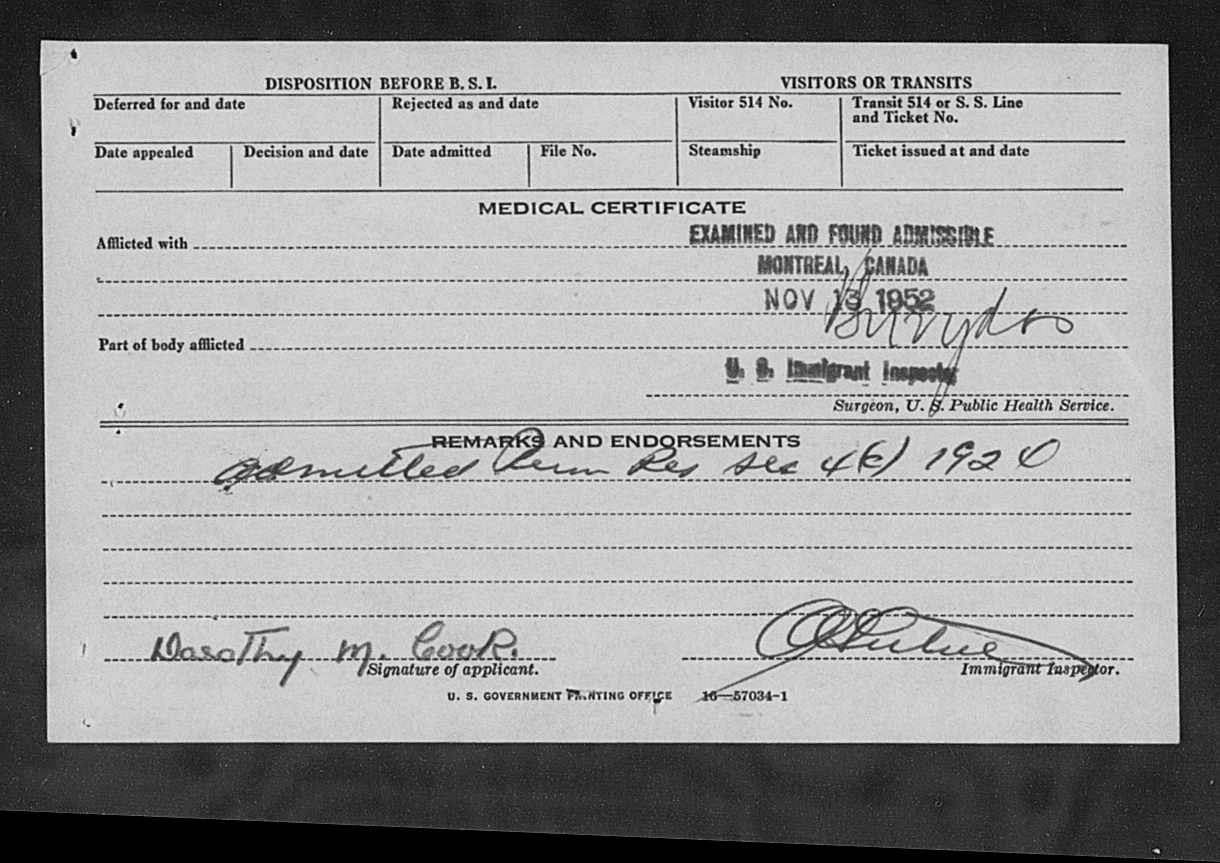 DISPOSITION BEFORE B. S. I.
VISITORS OR TRANSITS
Deferred for and date
Rejected as and date
Visitor 514 No.
Transit 514 or S. S. Line
and Ticket No.
Date appealed
Decision and date
Date admitted
File No.
Steamship
Ticket issued at and date
MEDICAL CERTIFICATE
Afflicted with
EXAMINED AND FOUND ADMISSIBLE
MONTREAL, CANADA
NOV 13 1952
Part of body afflicted
U. S. Immigrant Inspector
Surgeon, U. S. Public Health Service.
REMARKS AND ENDORSEMENTS
admitted Perm Res sec 4(c) 1924
Dorothy M. Cook.
Signature of applicant.
Immigrant Inspector.
U. S. GOVERNMENT PRINTING OFFICE 16—57034-1